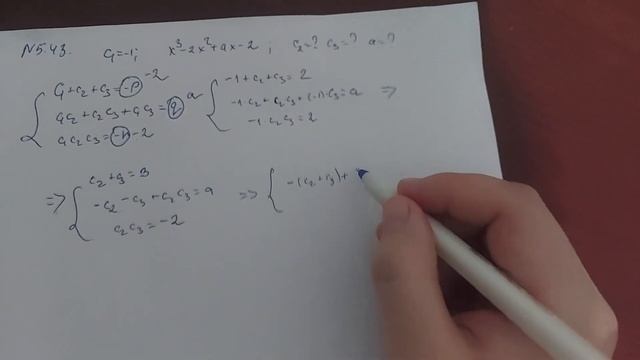 N5.43. c₁=-1; x³-2x²+ax-2; c₂=? c₃=? a=?
c₁+c₂+c₃=-p -2
c₁c₂+c₂c₃+c₁c₃=q a
c₁c₂c₃=-r -2
-1+c₂+c₃=2
-1·c₂+c₂c₃+(-1)·c₃=a =>
-1·c₂c₃=2
=> c₂+c₃=3
-c₂-c₃+c₂c₃=a
c₂c₃=-2
=> -(c₂+c₃)+